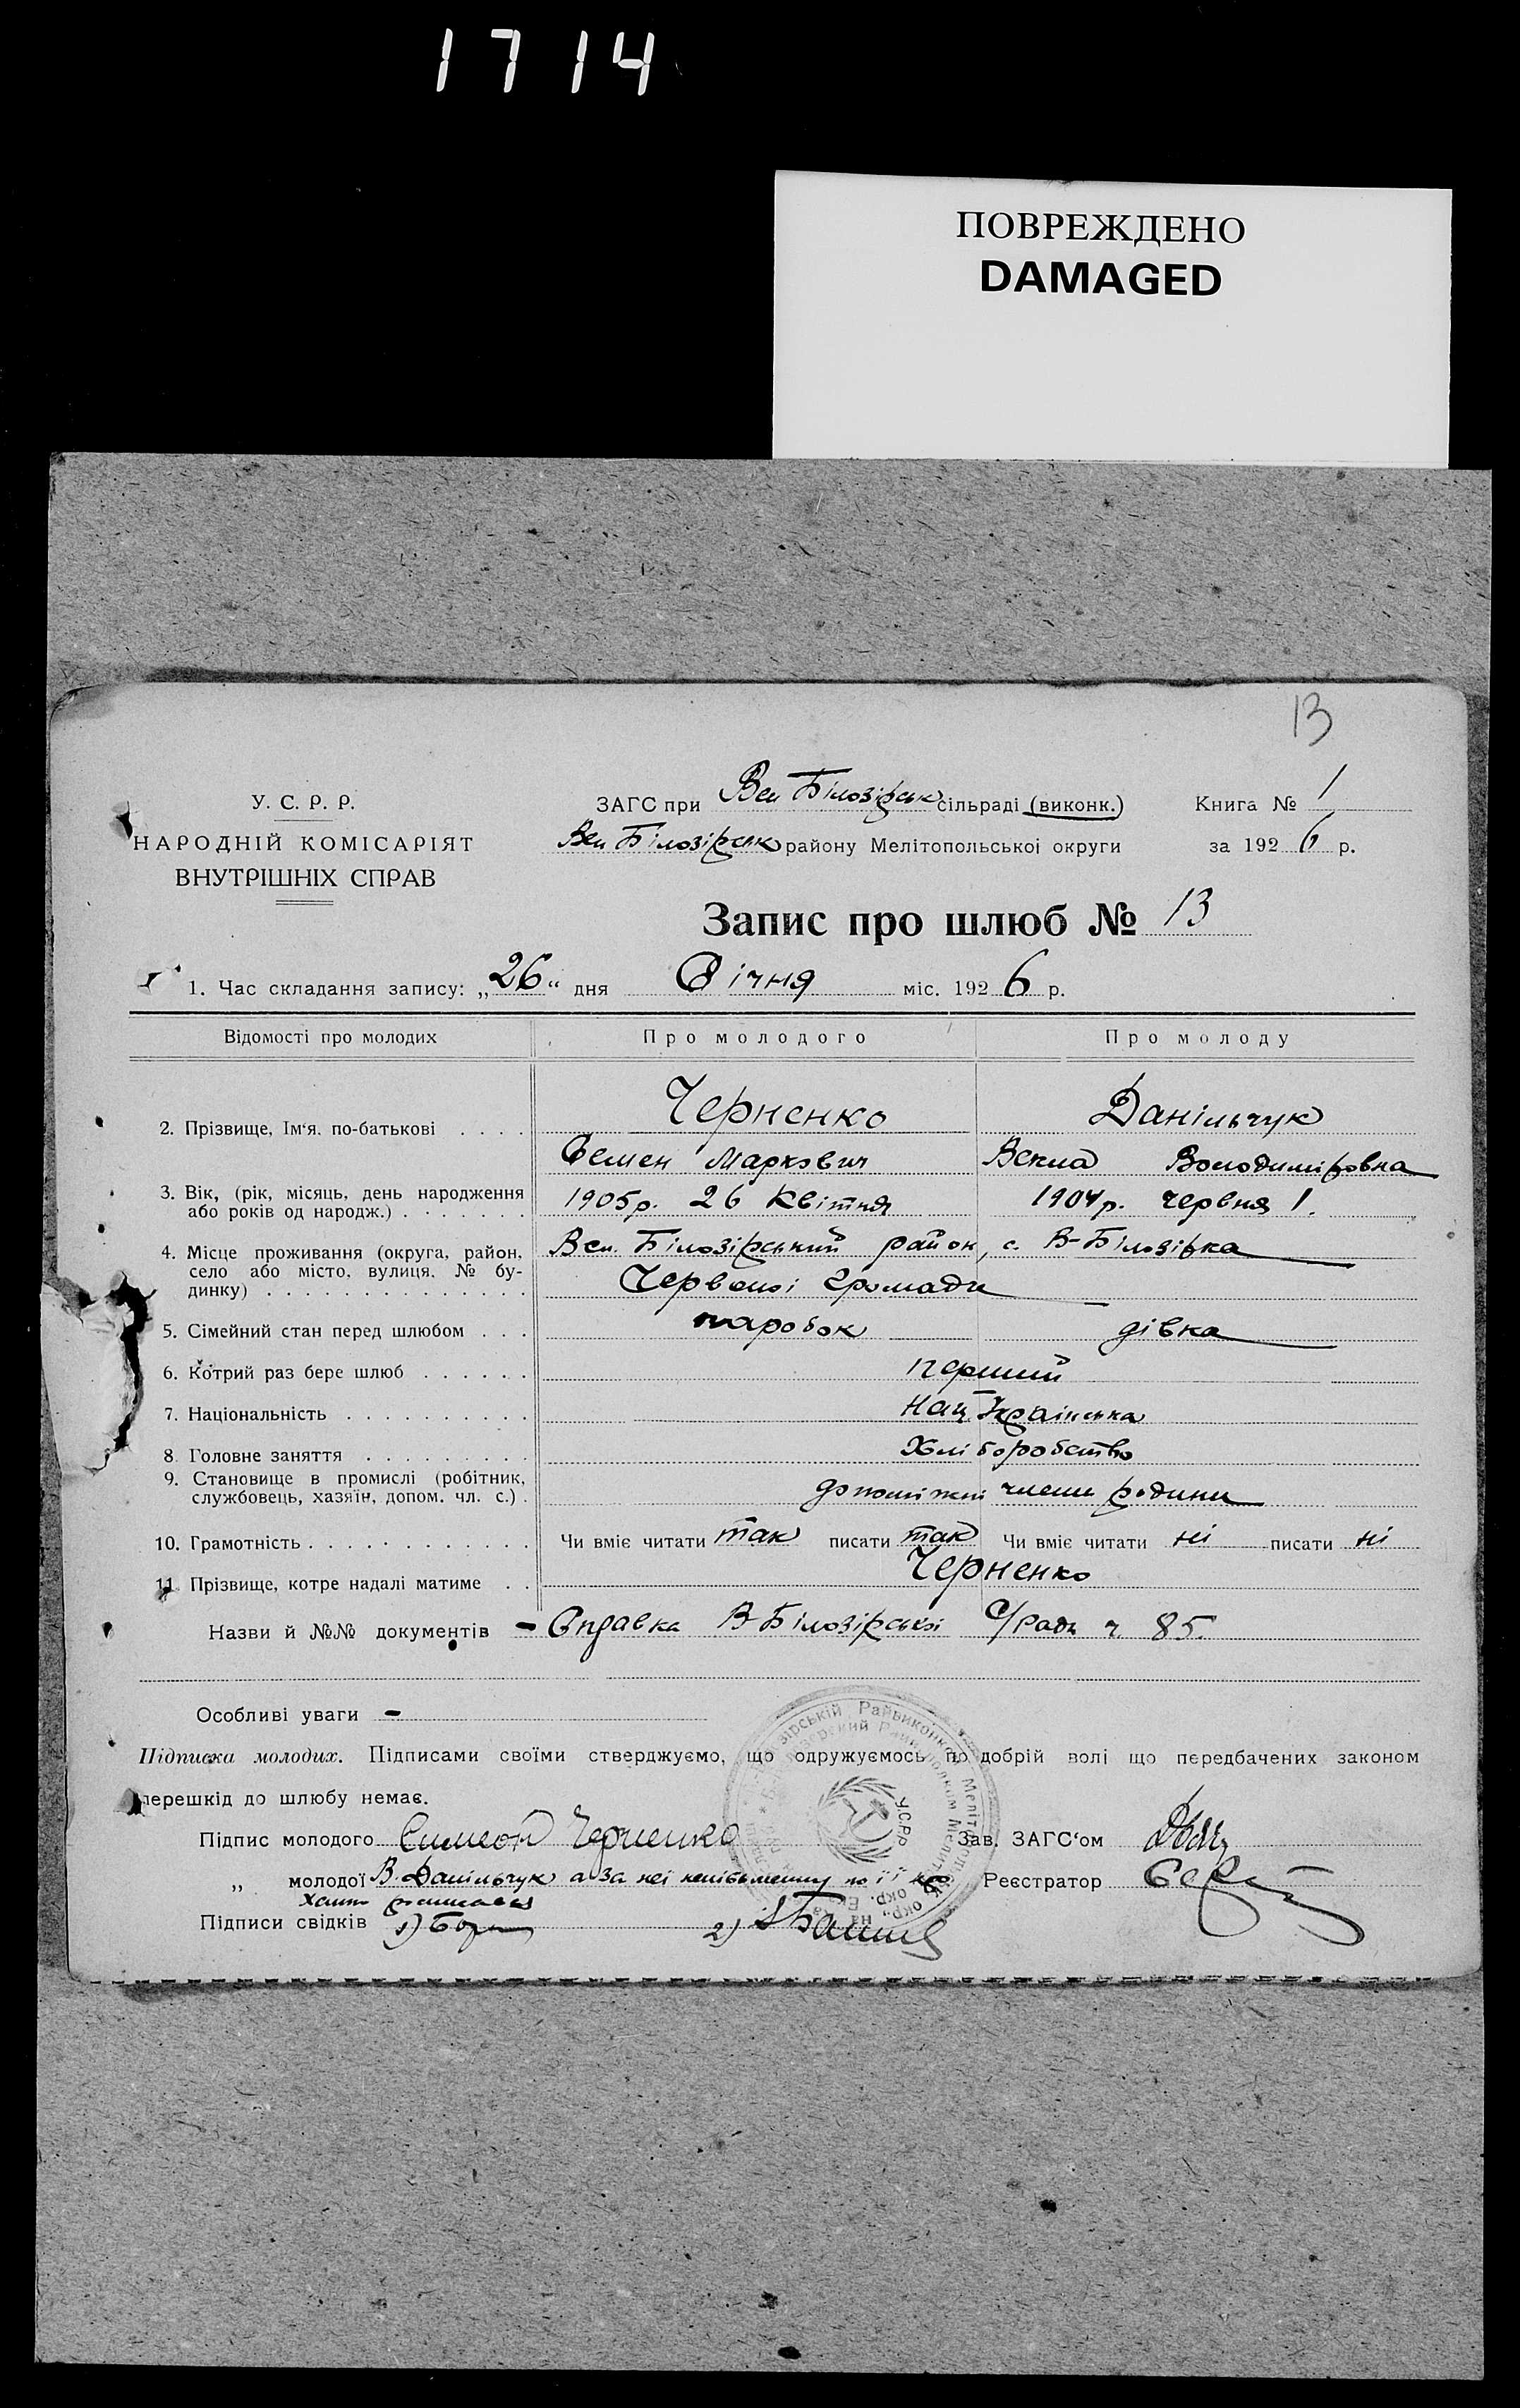 1714
ПОВРЕЖДЕНО
DAMAGED
13
У. С. Р. Р.
НАРОДНІЙ КОМІСАРІЯТ
ВНУТРІШНІХ СПРАВ
ЗАГС при Вел Білозірськ сільраді (виконк.)
Книга № 1
Вел Білозірськ району Мелітопольської округи
за 1926 р.
Запис про шлюб № 13
1. Час складання запису: „26“ дня Січня міс. 1926 р.
Відомості про молодих Про молодого Про молоду
2. Прізвище, Ім‘я, по-батькові . . . . Черненко Данільчук
Семен Маркович Векла Володимировна
3. Вік, (рік, місяць, день народження
або років од народж.) . . . . . . . 1905р. 26 Квітня 1904р. червня 1.
4. Місце проживання (округа, район,
село або місто, вулиця, № бу-
динку) . . . . . . . . . . . . . . .
Вел. Білозірський район, с. В-Білозірка
Червоної Громади
5. Сімейний стан перед шлюбом . . . паробок дівка
6. Котрий раз бере шлюб . . . . . . перший
7. Національність . . . . . . . . . . Нац. Українська
8. Головне заняття . . . . . . . . . Хліборобство
9. Становище в промислі (робітник,
службовець, хазяїн, допом. чл. с.) . допоміжні члени родини
10. Грамотність . . . . . . . . . . . . Чи вміє читати так писати так Чи вміє читати ні писати ні
11. Прізвище, котре надалі матиме . . Черненко
Назви й №№ документів - Справка В-Білозірської С/Ради ч 85.
Особливі уваги -
Підписка молодих. Підписами своїми стверджуємо, що одружуємось по добрій волі що передбачених законом
перешкід до шлюбу немає.
Підпис молодого Симеон Черненко
Зав. ЗАГС‘ом
„ молодої В. Данільчук а за неї неписьменну по її
Реєстратор
Підписи свідків 1) 2)
У.С.Р.Р